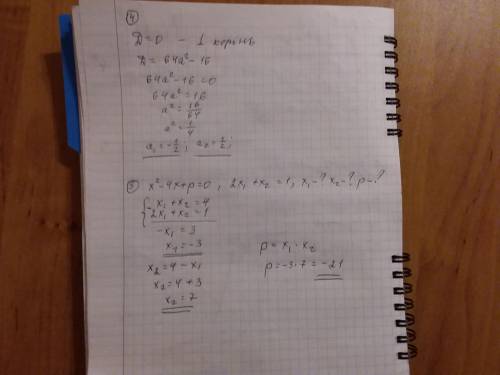 4
D=0 - 1 корень
D = 64a² - 16
64a² - 16 = 0
64a² = 16
a² = 16/64
a² = 1/4
a₁ = -1/2; a₂ = 1/2;
5 x² - 4x + p = 0, 2x₁ + x₂ = 1, x₁ - ? x₂ - ? p - ?
{ - x₁ + x₂ = 4
2x₁ + x₂ = 1
-x₁ = 3
x₁ = -3
x₂ = 4 - x₁
x₂ = 4 + 3
x₂ = 7
p = x₁ · x₂
p = -3 · 7 = -21